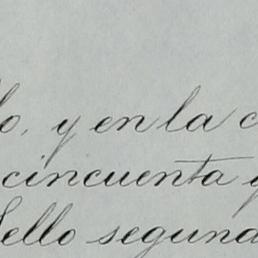 lo, y en la c
cincuenta y
Sello segund